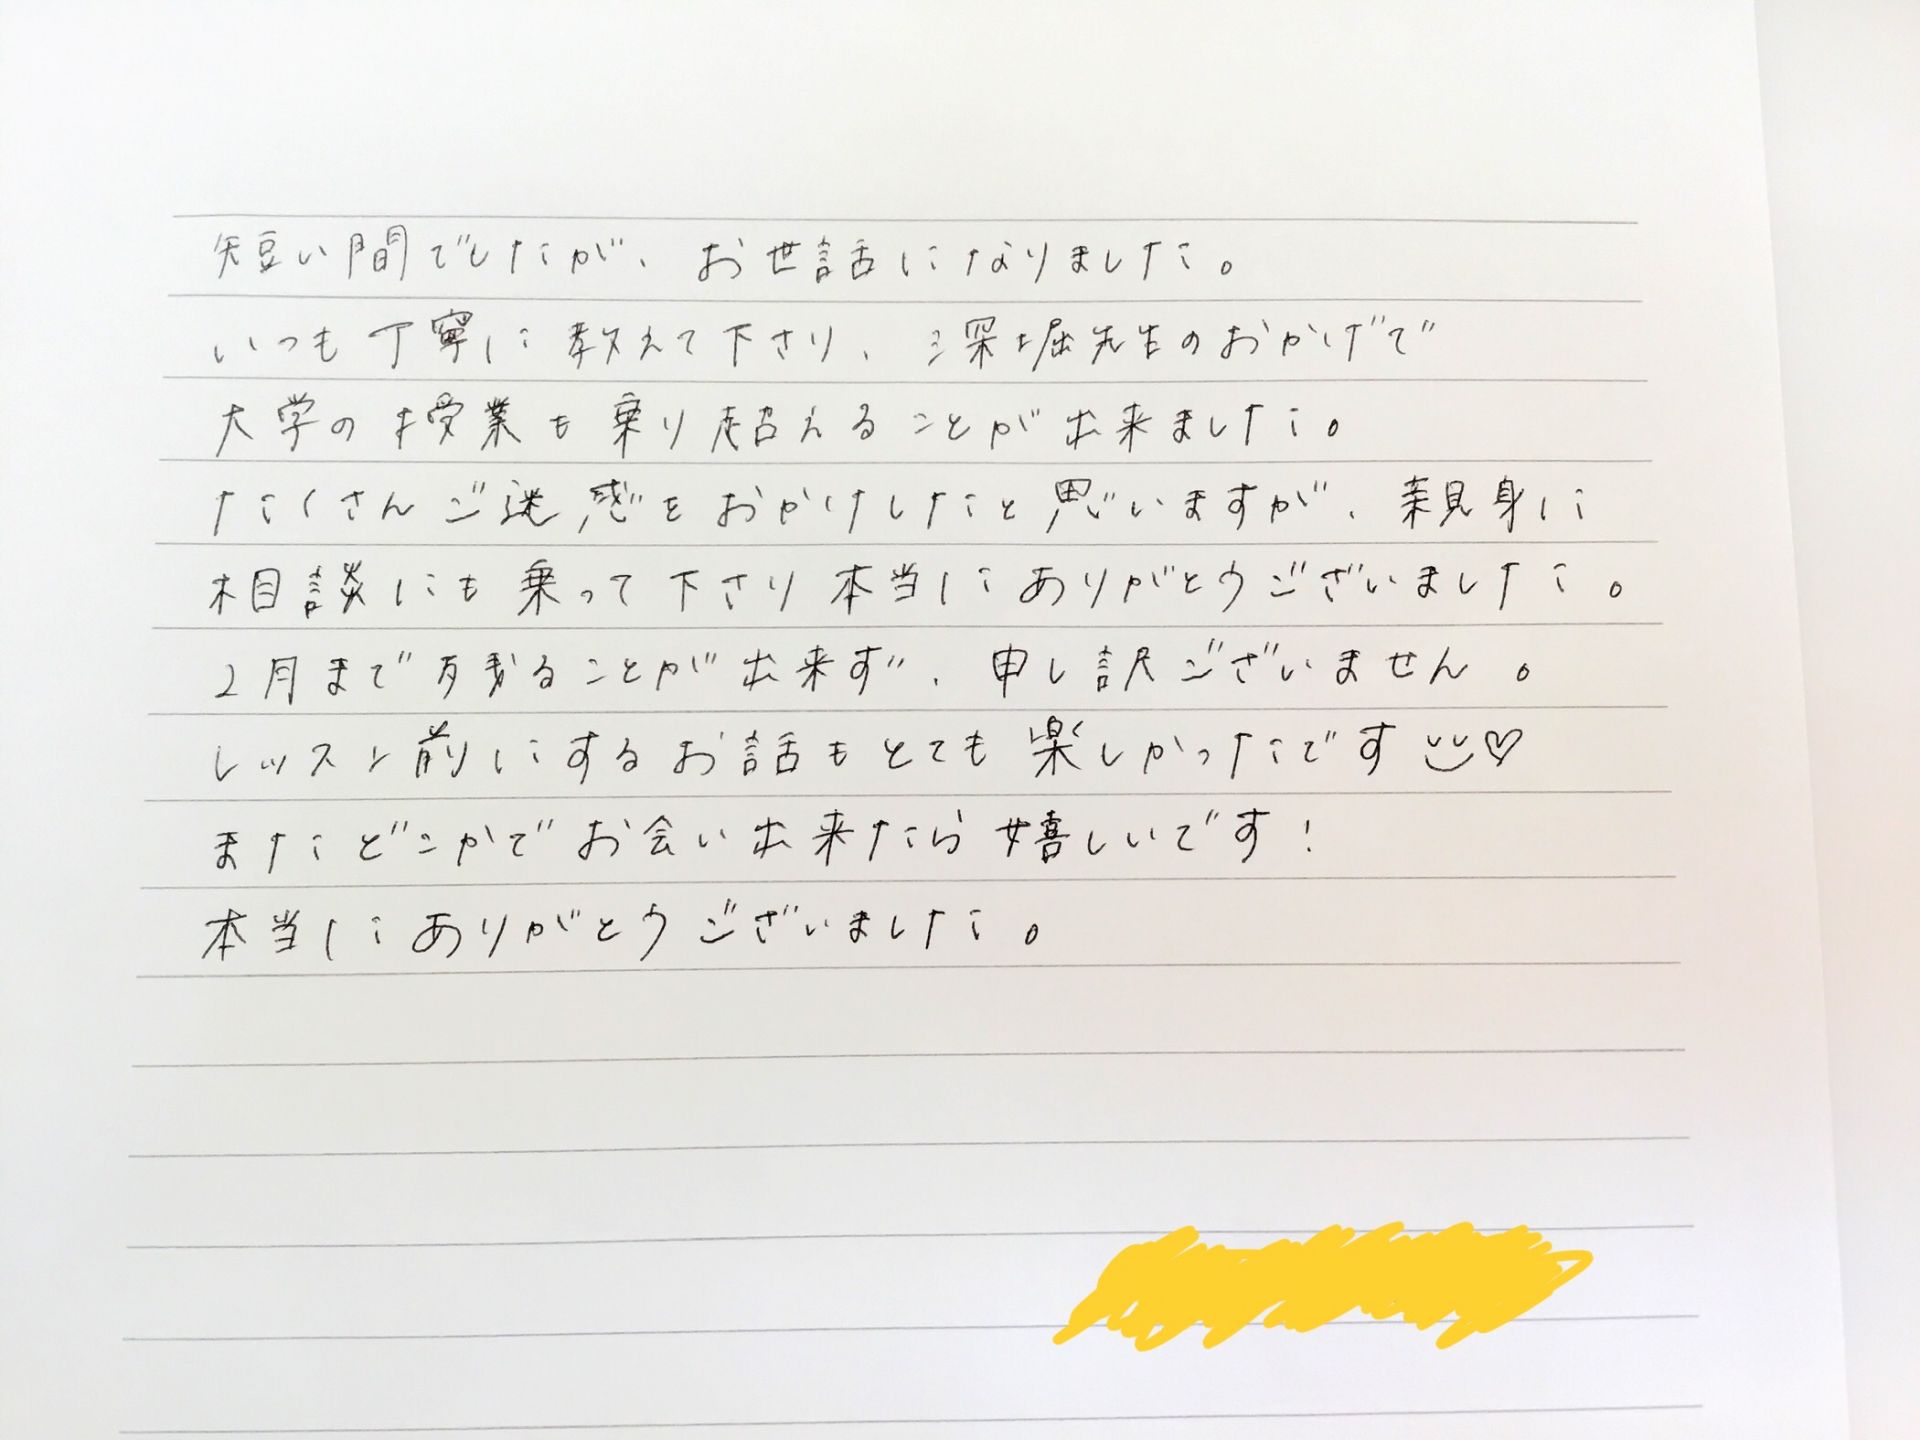 短い間でしたが、お世話になりました。
いつも丁寧に教えて下さり、深堀先生のおかげで
大学の授業も乗り超えることが出来ました。
たくさんご迷惑をおかけしたと思いますが、親身に
相談にも乗って下さり本当にありがとうございました。
2月まで残ることが出来ず、申し訳ございません。
レッスン前にするお話もとても楽しかったです♡
またどこかでお会い出来たら嬉しいです!
本当にありがとうございました。